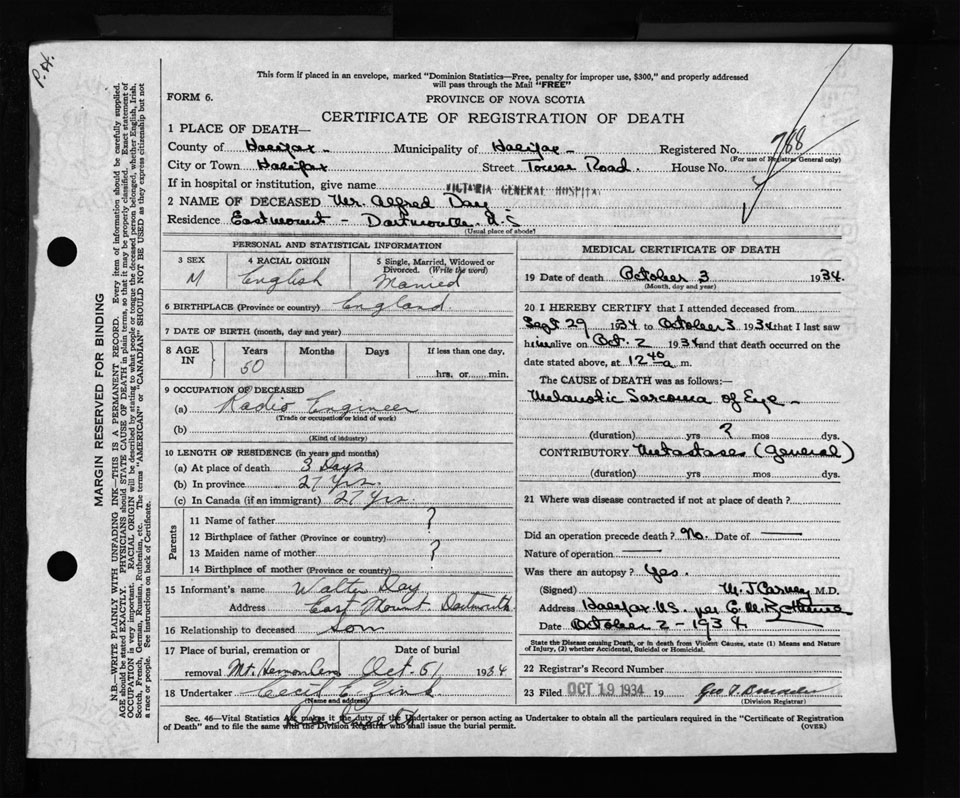 P.H.
This form if placed in an envelope, marked "Dominion Statistics—Free, penalty for improper use, $300," and properly addressed
will pass through the Mail "FREE"
FORM 6.
PROVINCE OF NOVA SCOTIA
CERTIFICATE OF REGISTRATION OF DEATH
1 PLACE OF DEATH—
County of Halifax - Municipality of Halifax - Registered No. 768
(For use of Registrar General only)
City or Town Halifax Street Tower Road. House No.
If in hospital or institution, give name VICTORIA GENERAL HOSPITAL
2 NAME OF DECEASED Mr. Alfred Day
Residence Eastmount - Dartmouth N.S
(Usual place of abode)
PERSONAL AND STATISTICAL INFORMATION
3 SEX
M
4 RACIAL ORIGIN
English
5 Single, Married, Widowed or
Divorced. (Write the word)
Married
6 BIRTHPLACE (Province or country) England.
7 DATE OF BIRTH (month, day and year)
8 AGE IN
Years Months Days If less than one day,
50
hrs. or min.
9 OCCUPATION OF DECEASED
(a) Radio Engineer
(Trade or occupation or kind of work)
(b)
(Kind of industry)
10 LENGTH OF RESIDENCE (in years and months)
(a) At place of death 3 Days
(b) In province 27 Yrs.
(c) In Canada (if an immigrant) 27 Yrs.
Parents
11 Name of father ?
12 Birthplace of father (Province or country)
13 Maiden name of mother ?
14 Birthplace of mother (Province or country)
15 Informant's name Walter Day
Address East Mount Dartmouth
16 Relationship to deceased Son
17 Place of burial, cremation or Date of burial
removal Mt. Oct. 5/ 1934
18 Undertaker Cecil E. Zink
(Name and address)
MEDICAL CERTIFICATE OF DEATH
19 Date of death October 3 1934.
(Month, day and year)
20 I HEREBY CERTIFY that I attended deceased from
Sept 29 1934 to October 3 1934 that I last saw
him alive on Oct. 2 1934 and that death occurred on the
date stated above, at 12 40 a m.
The CAUSE OF DEATH was as follows:—
Melanotic Sarcoma of Eye -
(duration) yrs ? mos dys.
CONTRIBUTORY Metastases (General)
(duration) yrs mos dys.
21 Where was disease contracted if not at place of death?
Did an operation precede death? No. Date of —
Nature of operation —
Was there an autopsy? Yes.
(Signed) M. J Carney M.D.
Address Halifax N.S. per
Date October 2 - 1934
State the Disease causing Death, or in death from Violent Causes, state (1) Means and Nature
of Injury, (2) whether Accidental, Suicidal or Homicidal.
22 Registrar's Record Number
23 Filed OCT 19 1934 19
(Division Registrar)
Sec. 46—Vital Statistics Act makes it the duty of the Undertaker or person acting as Undertaker to obtain all the particulars required in the "Certificate of Registration
of Death" and to file the same with the Division Registrar who shall issue the burial permit. (OVER)
MARGIN RESERVED FOR BINDING
N.B.—WRITE PLAINLY WITH UNFADING INK—THIS IS A PERMANENT RECORD. Every item of information should be carefully supplied.
AGE should be stated EXACTLY. PHYSICIANS should STATE CAUSE OF DEATH in plain terms, so that it may be properly classified. Exact statement of
OCCUPATION is very important. RACIAL ORIGIN will be described by stating to what people or tongue the deceased person belonged, whether English, Irish,
Scotch, French, German, Russian, Ruthenian, etc. The terms "AMERICAN" or "CANADIAN" SHOULD NOT BE USED as they express citizenship but not
a race or people. See instructions on back of Certificate.